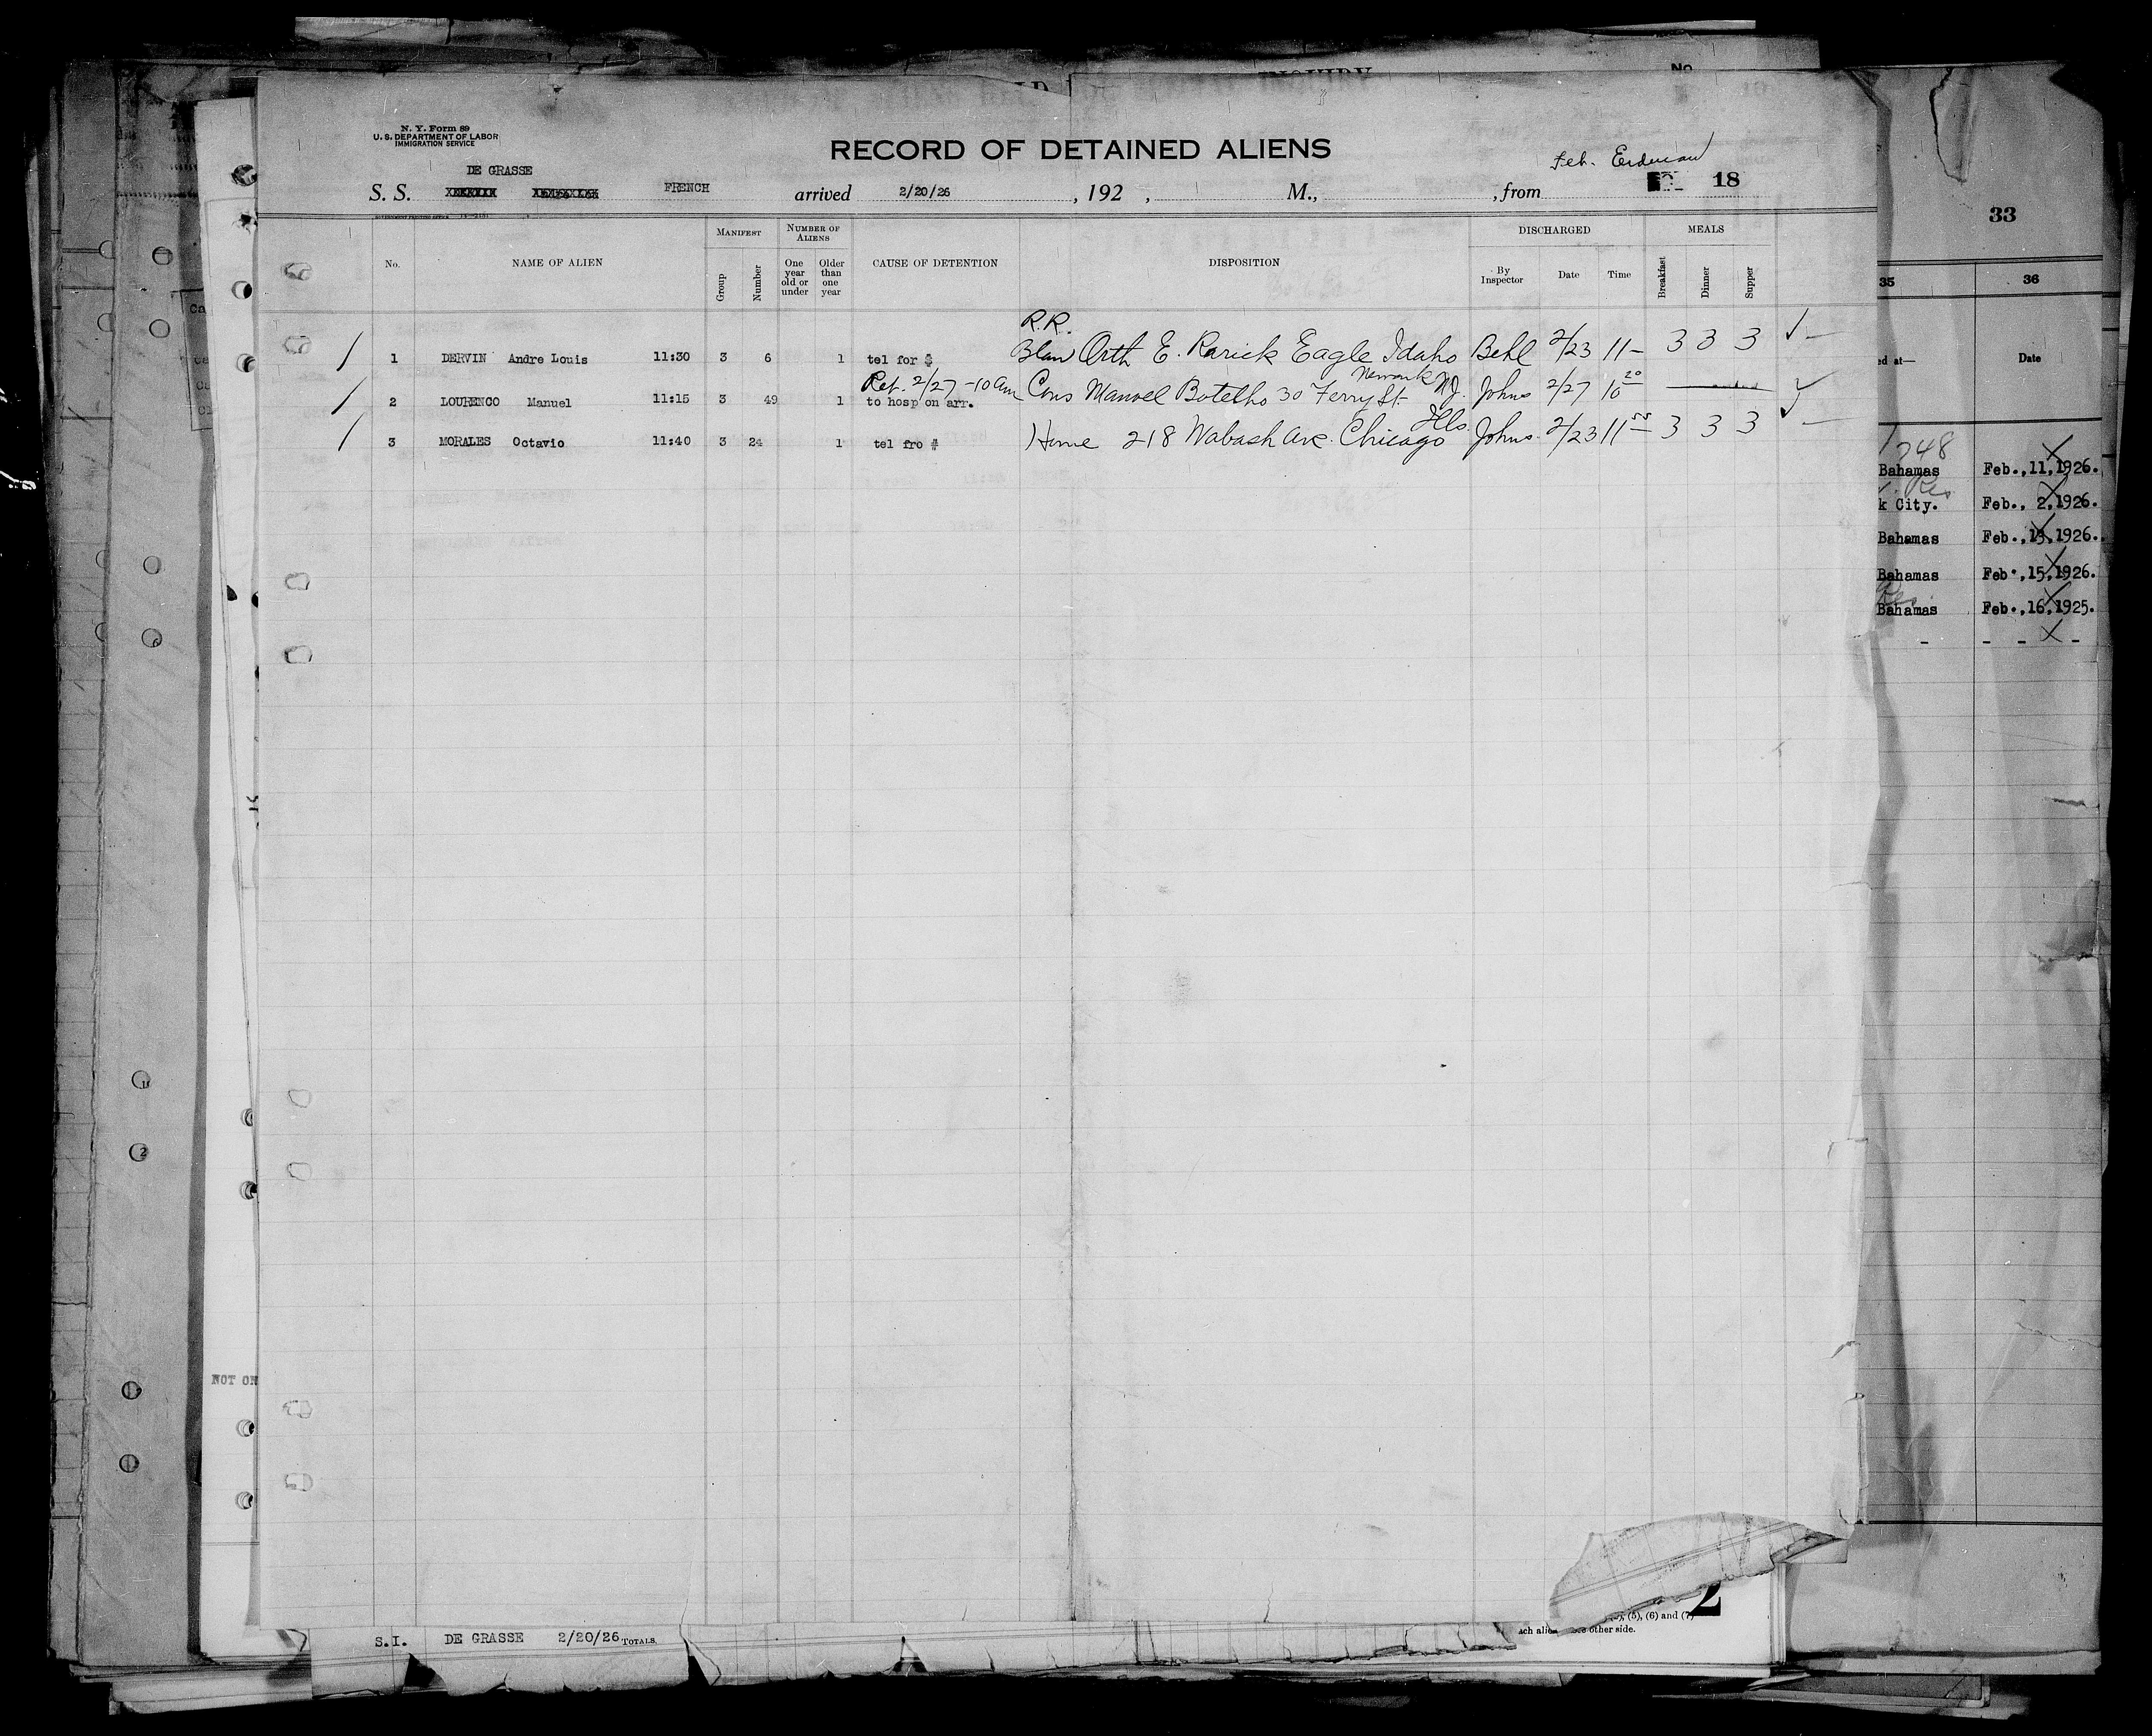 INQUIRY
No
N. Y. Form 89
U. S. DEPARTMENT OF LABOR
IMMIGRATION SERVICE
RECORD OF DETAINED ALIENS
Feb. Erdman
DE GRASSE
S. S. FRENCH arrived 2/20/26, 192 , M., , from 18
33
No. NAME OF ALIEN MANIFEST Group Number NUMBER OF ALIENS One year old or under Older than one year CAUSE OF DETENTION DISPOSITION DISCHARGED By Inspector Date Time MEALS Breakfast Dinner Supper
35 36
ed at— Date
R.R.
1 DERVIN Andre Louis 11:30 3 6 1 tel for $ Orth E. Rarick Eagle Idaho Behl 2/23 11- 3 3 3
Ret. 2/27 -10 am
2 LOURENCO Manuel 11:15 3 49 1 to hosp on arr. Cons Manoel Botelho 30 Ferry St. Newark NJ. Johns 2/27 10 20
3 MORALES Octavio 11:40 3 24 1 tel fro $ Home 218 Wabash Ave Chicago Ills. Johns 2/23 11 55 3 3 3
748
Bahamas Feb.,11,1926.
k City. Feb., 2,1926.
Bahamas Feb.,13,1926.
Bahamas Feb.,15,1926.
Bahamas Feb.,16,1925.
NOT ON
S.I. DE GRASSE 2/20/26 TOTALS
2
(5), (6) and (7)
other side.